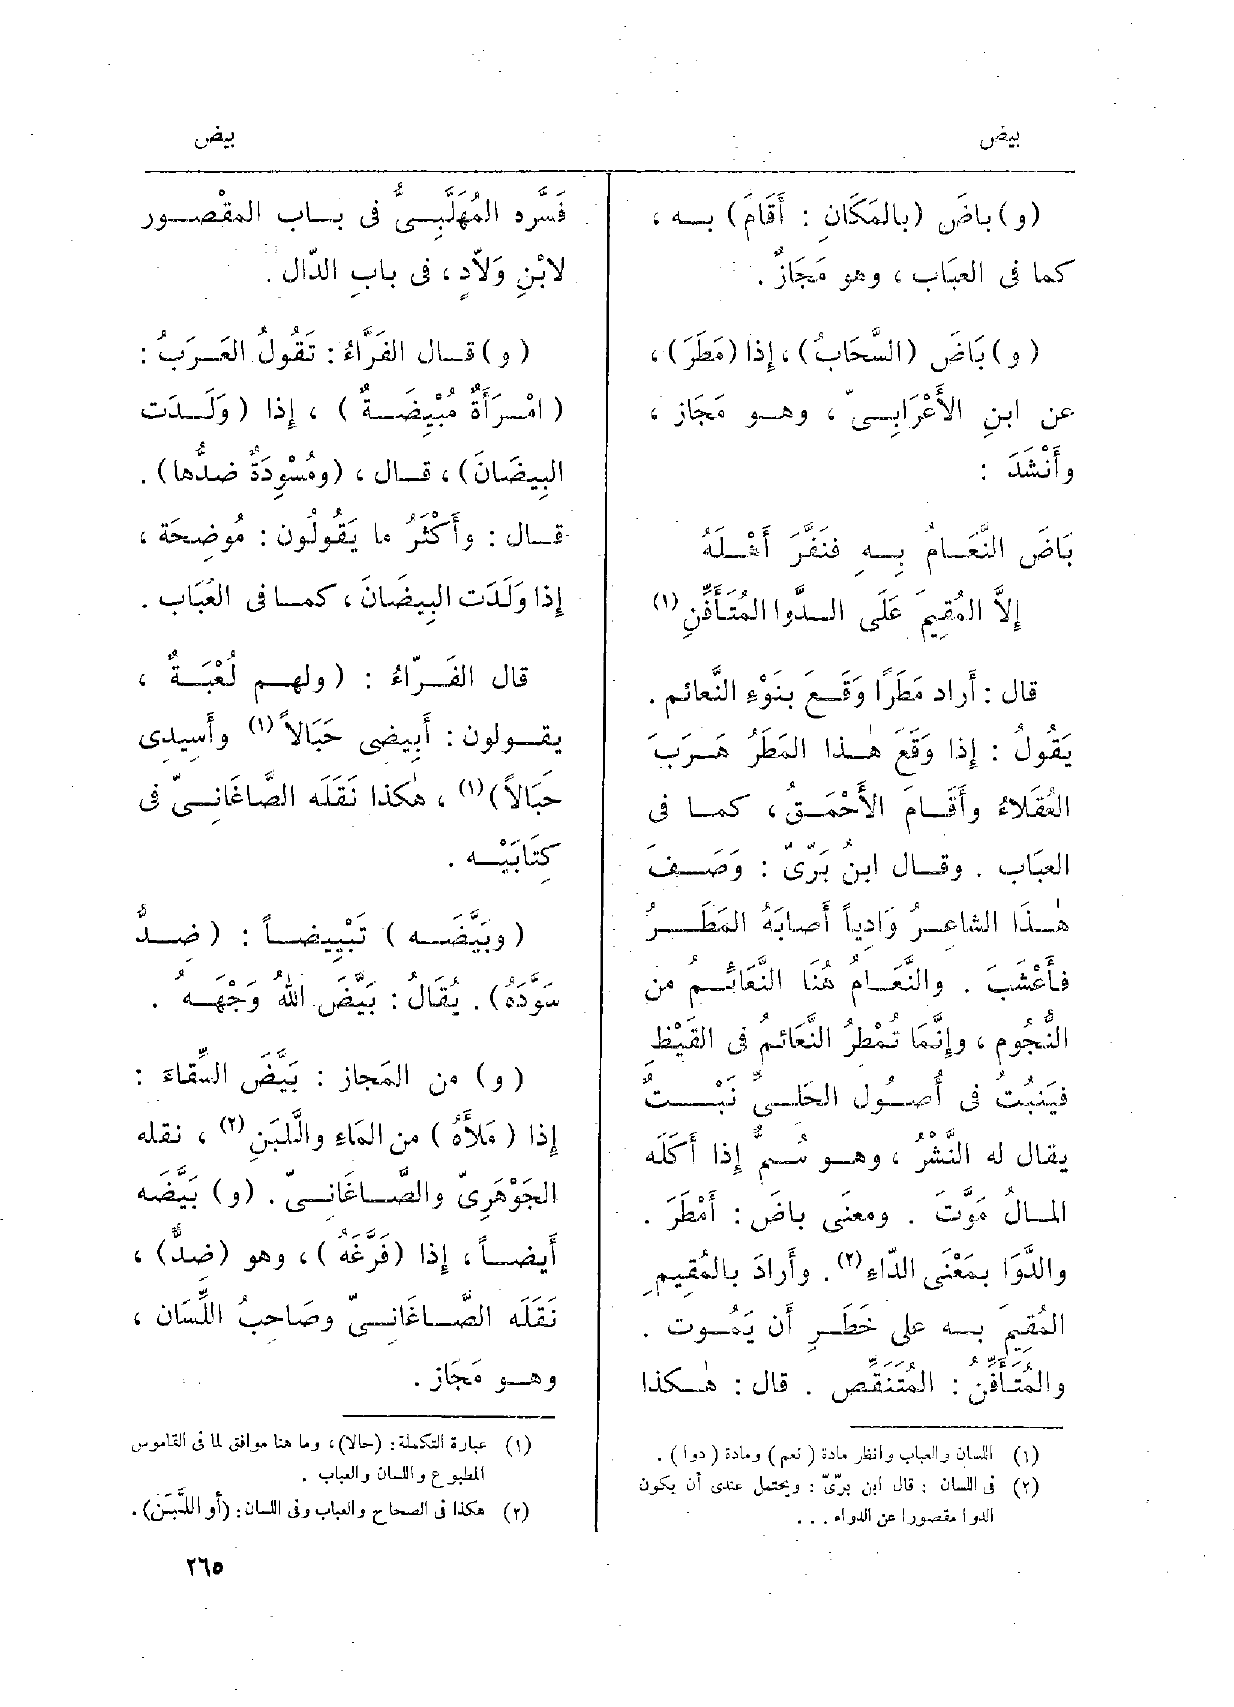 بيض
بيض
(و) باضَ (بالمَكَانِ : أَقَامَ) بــه ،
كما فى العبَاب ، وهو مَجَازٌ .
(و) بَاضَ (السَّحَابُ) ، إذا (مَطَرَ) ،
عن ابنِ الأَعْرَابِــىّ ، وهــو مَجَاز ،
وأَنْشَدَ :
بَاضَ النَّعَــامُ بِــهِ فنَفَّرَ أَهْــلَهُ
إلاَّ المُقِيمَ عَلَى الــدَّوا المُتَأَفِّنِ (١)
قال : أَراد مَطَرًا وَقَــعَ بنَوْءِ النَّعائم .
يَقُولُ : إذا وَقَعَ هٰــذا المَطَرُ هَــرَبَ
العُقَلاءُ وأَقَــامَ الأَحْمَــقُ ، كمــا فى
العبَاب . وقــال ابنُ بَرِّىّ : وَصَــفَ
هٰــذَا الشاعِــرُ وَادِياً أَصابَهُ المَطَــرُ
فأَعْشَبَ . والنَّعَــامُ هُنَا النَّعَائِــمُ من
النُّجُوم ، وإِنَّمَا تُمْطِرُ النَّعَائمُ فى القَيْظِ
فيَنبُتُ فى أُصــُول الحَلِــىِّ نَبْــتٌ
يقال له النَّشْرُ ، وهــو سُــمٌّ إذا أَكَلَه
المــالُ مَوَّتَ . ومعنَى باضَ : أَمْطَرَ .
والدَّوَا بمَعْنَى الدّاءِ (٢) . وأَرادَ بالمُقِيمِ
المُقِيمَ بــه على خَطَــرِ أَن يَمُــوت .
والمُتَأَفِّنُ : المُتَنَقِّص . قال : هٰــكذا
(١) اللسان والعباب وانظر مادة (نعم) ومادة (دوا) .
(٢) فى اللسان : قال ابن برّىّ : ويحتمل عندى أن يكون
الدوا مقصورا عن الدواء . . .
فَسَّره المُهَلَّبِــىُّ فى بــاب المقْصــور
لابْنِ وَلاّدٍ ، فى بابِ الدّال .
(و) قــال الفَرَّاءُ : تَقُولُ العَــرَبُ :
(امْــرَأَةٌ مُبْيِضَــةٌ) ، إذا (وَلَــدَت
البِيضَانَ) ، قــال ، (ومُسْوِدَةٌ ضدُّها) .
قــال : وأَكْثَرُ ما يَقُولُون : مُوضِحَة ،
إذا وَلَدَت البِيضَانَ ، كمــا فى العُبَاب .
قال الفَــرّاءُ : (ولهــم لُعْبَــةٌ ،
يقــولون : أَبِيضِى حَبَالاً (١) وأَسِيدِى
حَبَالاً) (١) ، هٰكذا نَقَلَه الصَّاغَانِــىّ فى
كِتَابَيْــه .
(وبَيَّضَــه) تَبْيِيضــاً : (ضِــدُّ
سَوَّدَهُ) . يُقَالُ : بَيَّضَ اللهُ وَجْهَــهُ .
(و) من المَجاز : بَيَّضَ السِّقاءَ :
إذا (مَلأَهُ) من المَاءِ واللَّبَنِ (٢) ، نقله
الجَوْهَرِىّ والصَّــاغَانِــىّ . (و) بَيَّضَه
أَيضــاً ، إذا (فَرَّغَهُ) ، وهو (ضِدٌّ) ،
نَقَلَه الصَّــاغَانِــىّ وصَاحِبُ اللِّسَان ،
وهــو مَجَاز .
(١) عبارة التكملة : (حالا) ، وما هنا موافق لما فى القاموس
المطبوع واللسان والعباب .
(٢) هكذا فى الصحاح والعباب وفى اللسان : (أَو اللَّبَنَ) .
٢٦٥